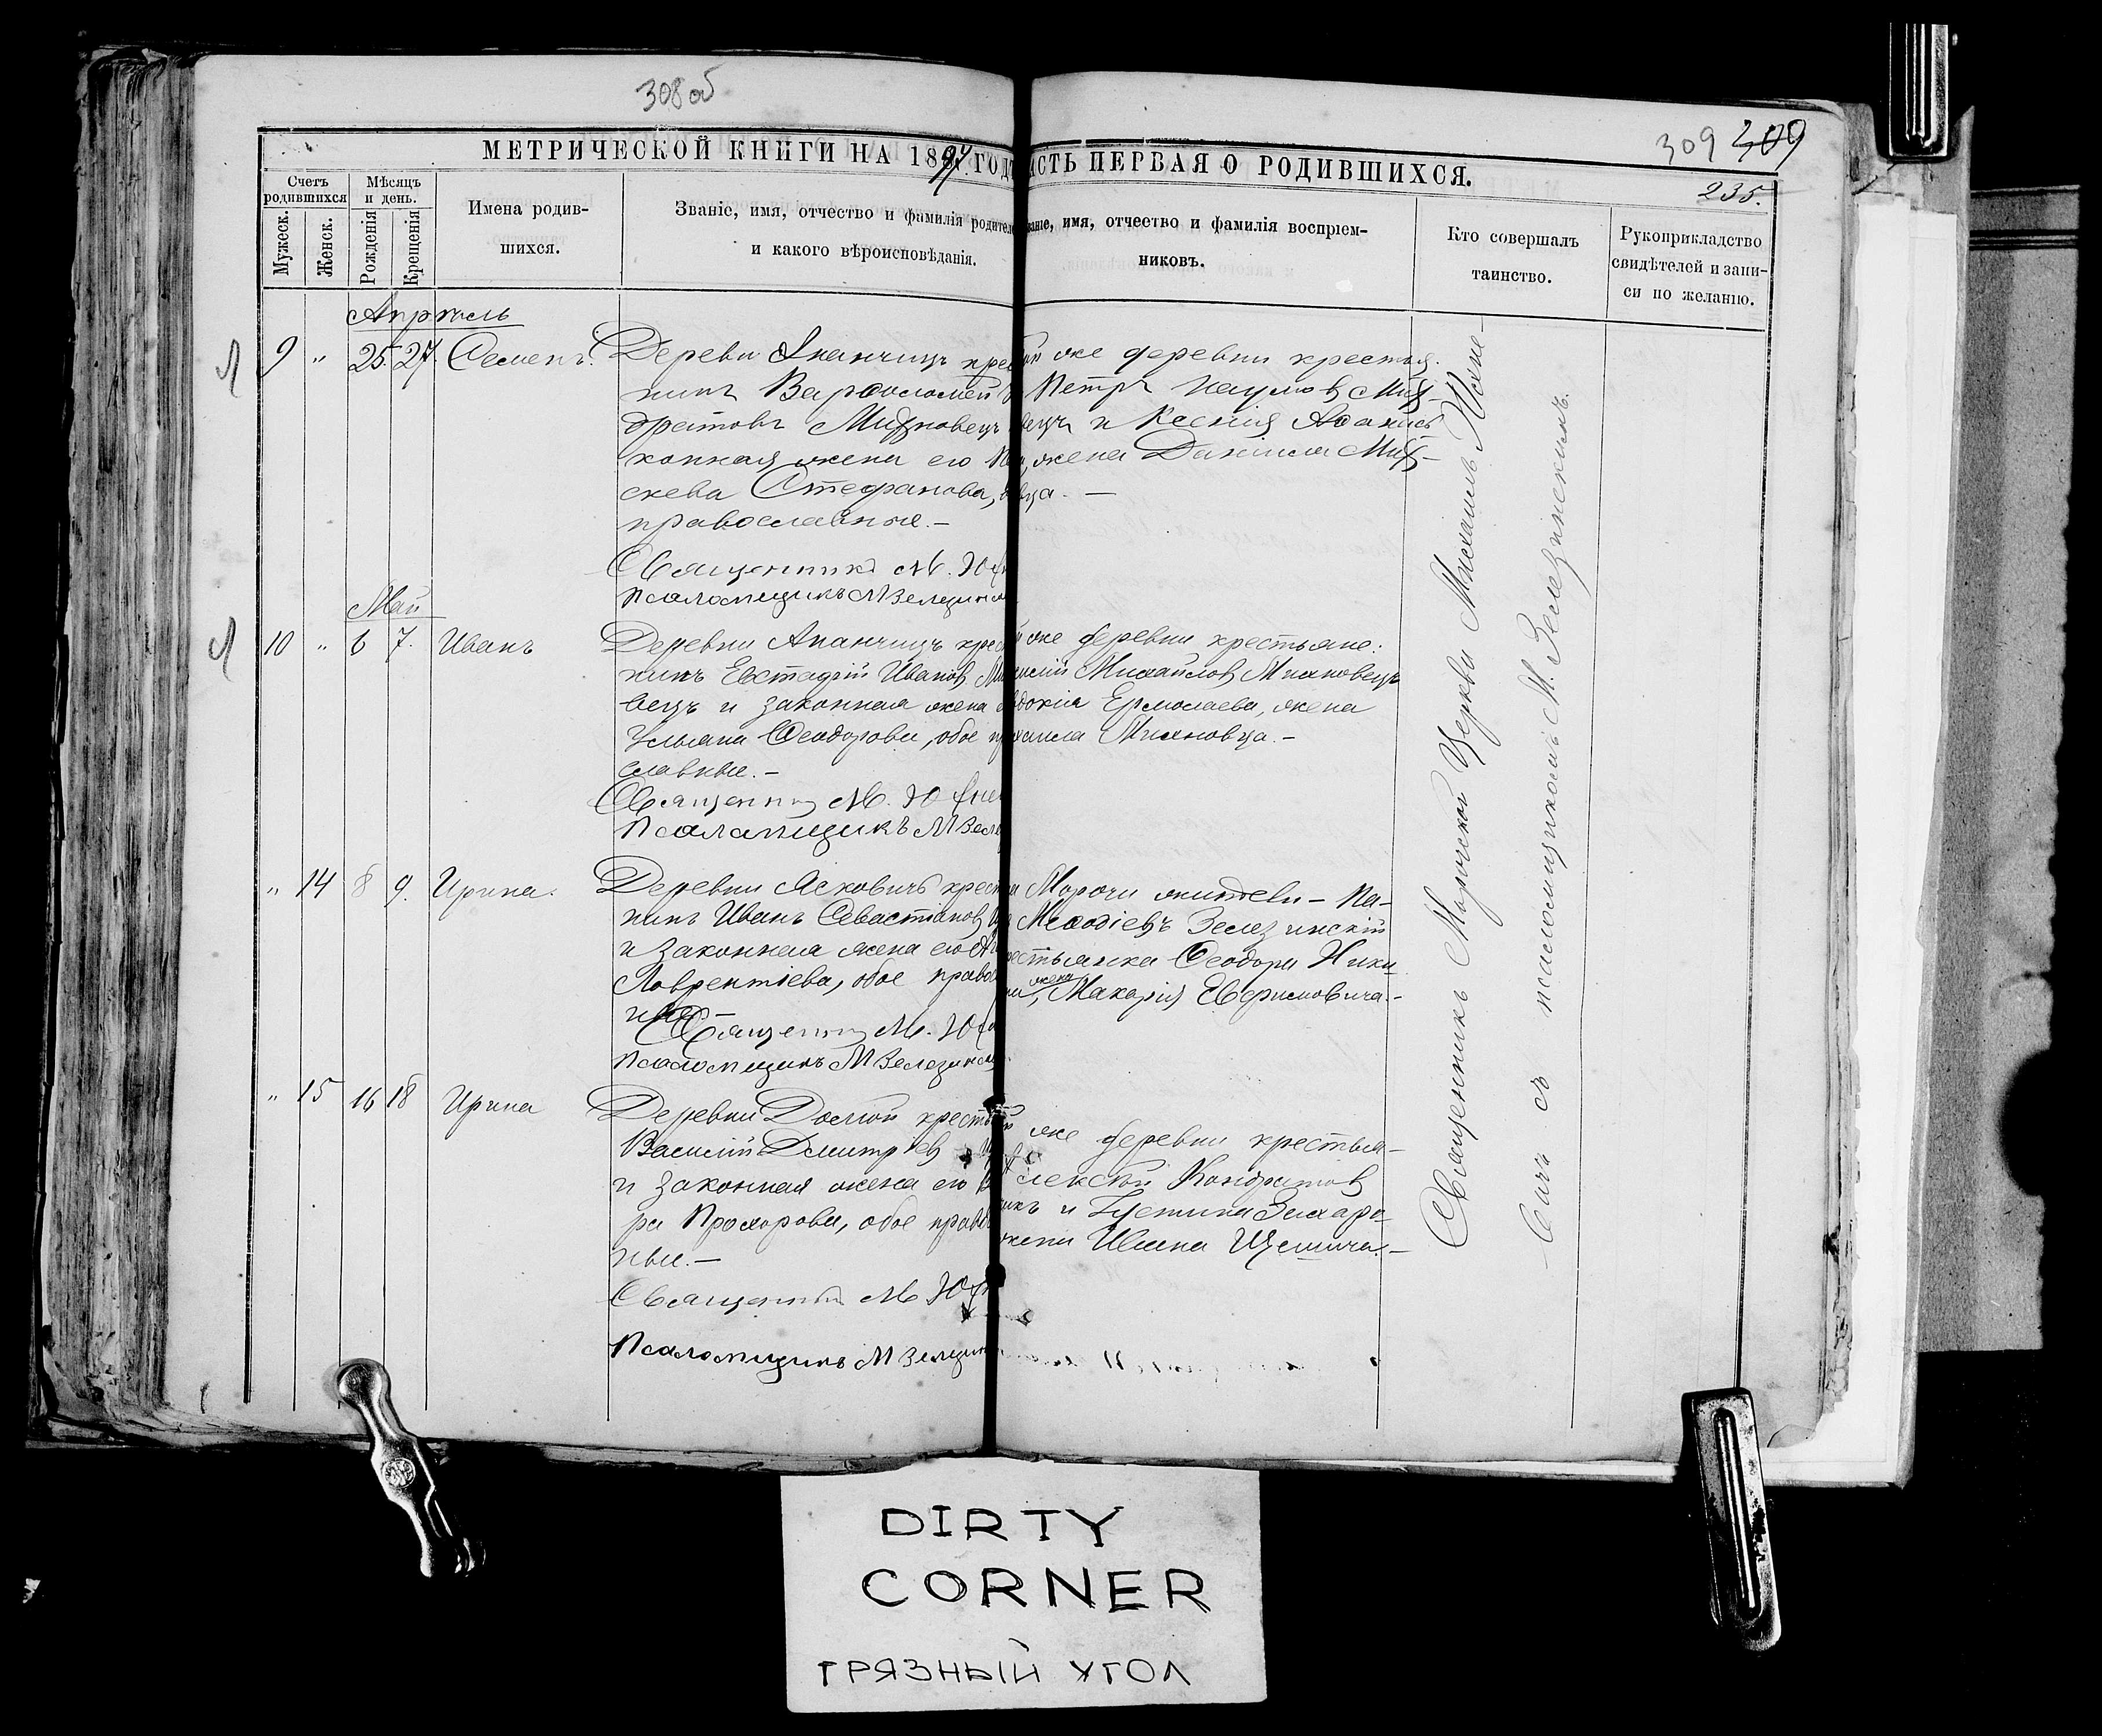 308 об
309 309
МЕТРИЧЕСКОЙ КНИГИ НА 1897 ГОДЪ
ЧАСТЬ ПЕРВАЯ О РОДИВШИХСЯ.
235.
Счетъ родившихся
Мужеск.
Женск.
Мѣсяцъ и день.
Рожденія
Крещенія
Имена родив-
шихся.
Званіе, имя, отчество и фамилія родител
и какого вѣроисповѣданія.
званіе, имя, отчество и фамилія воспріем-
никовъ.
Кто совершалъ
таинство.
Рукоприкладство
свидѣтелей и запи-
си по желанію.
Апрѣль
9 " 25. 27. Семенъ.
Деревни Апанчицъ крес
нинъ Варѳоломей
дратовъ Михновецъ
конная жена его
скева Стефанова,
православные.-
Священникъ М.
Псаломщикъ М Зелезинск
же деревни крестья-
Петръ Наумовъ Мих-
вецъ и Ксенія
жена Даніила Мих-
вца. —
Май
10 " 6 7. Иванъ
Деревни Апанчицъ крес
нинъ Евстафій Ивановъ Ми
вецъ и законная жена
Ульяна Ѳеодорова, обое
славные.-
Священникъ М.
Псаломщикъ М Зеле
же деревни крестьяне:
Михайловъ Михновецъ
Ермолаева, жена
Михаила Михновца.-
" 14 8 9. Ирина.
Деревни Ясковичъ крес
нинъ Иванъ Севастіановъ
и законная жена его
Лаврентіева, обое право
ные.-
Священникъ М.
Псаломщикъ М Зелезинск
Морочи жители - Па-
Меѳодіевъ Зелезинскій
крестьянка Ѳеодора Ники-
жена
Макарія
" 15 16 18 Ирина
Деревни Долгой крестья
Василій Дмитріевъ
и законная жена его
ра Прохорова, обое право
ные.-
Священникъ М
Псаломщикъ М Зелезин
же деревни крестья-
Алексѣй Кондратовъ
и Густина Захаро-
жена Ивана
Священникъ Морочской Церкви Михаилъ Юхне-
вичъ съ псаломщикомъ М. Зелезинскимъ.
DIRTY
CORNER
ГРЯЗНЫЙ УГОЛ